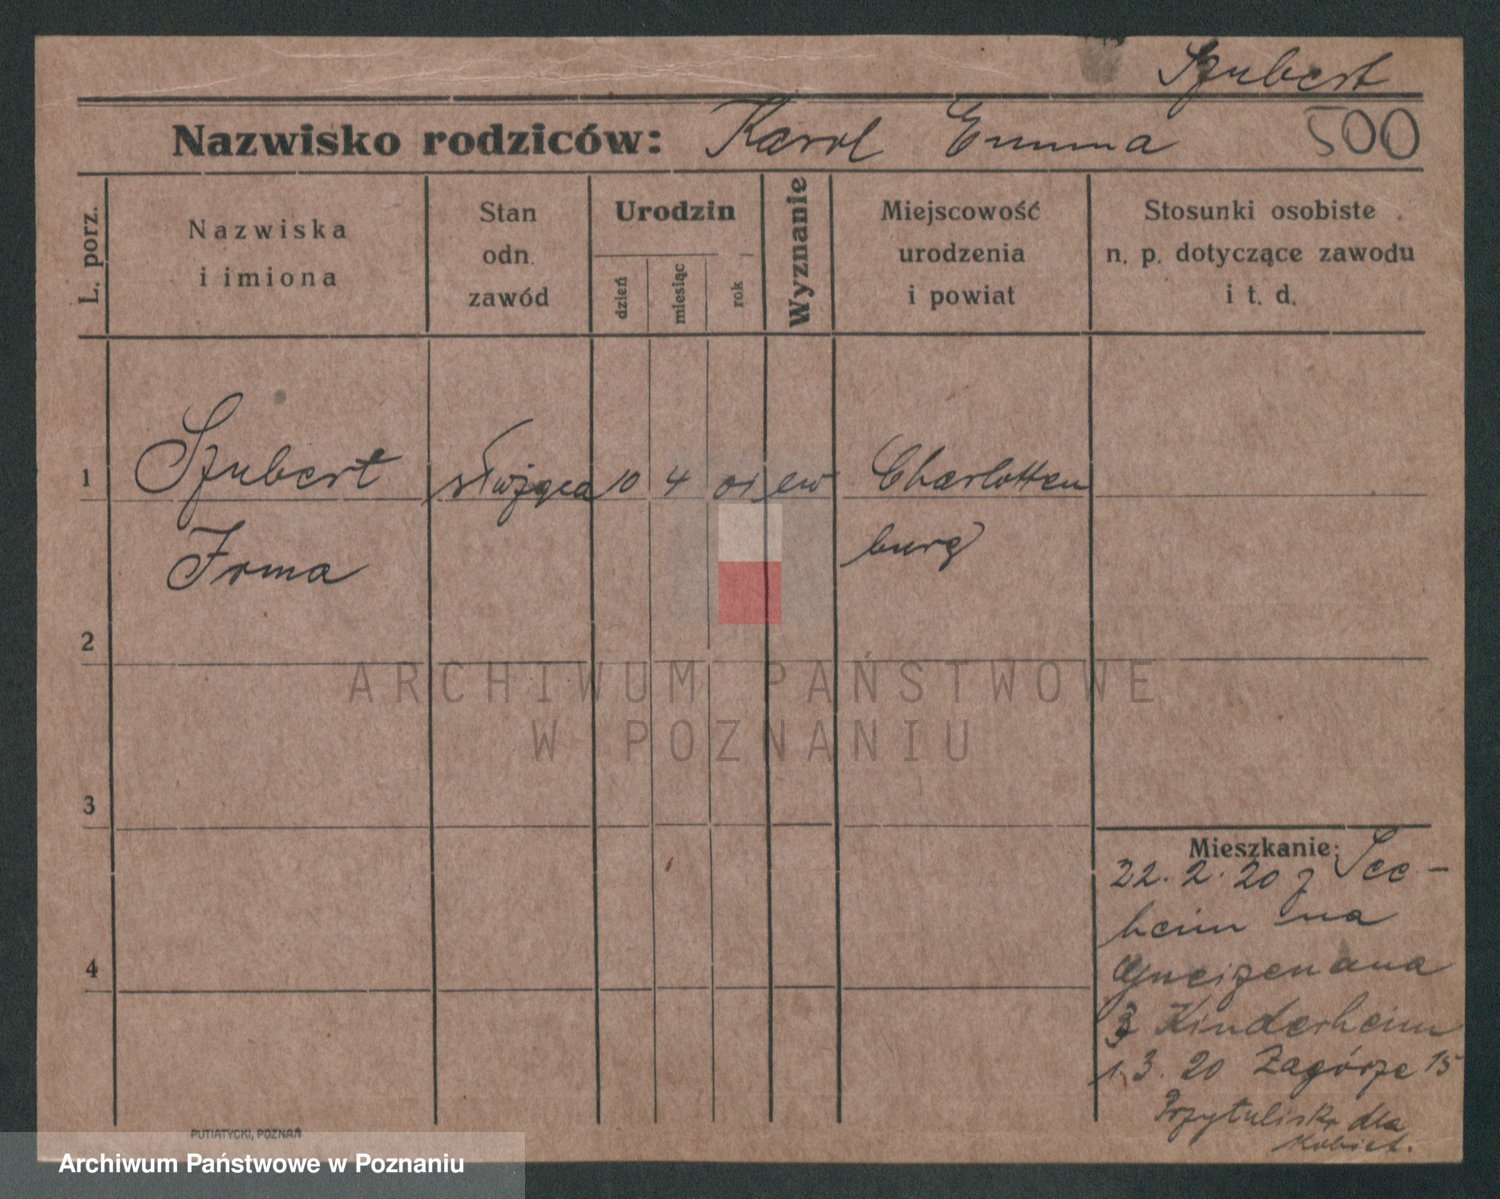 Szubert
Nazwisko rodziców: Karol Emma 500
L. porz.
Nazwiska
i imiona
Stan
odn.
zawód
Urodzin
dzień
miesiąc
rok
Wyznanie
Miejscowość
urodzenia
i powiat
Stosunki osobiste
n. p. dotyczące zawodu
i t. d.
1 Szubert służąca 10 4 01 ew Charlotten
Irma burg
2
ARCHIWUM PAŃSTWOWE
W POZNANIU
3
Mieszkanie:
22. 2. 20 z See-
heim na
Gneizenaua
3 Kinderheim
1. 3. 20 Zagórze 15
Przytulisk. dla
Kobiet.
4
PUTIATYCKI, POZNAŃ
Archiwum Państwowe w Poznaniu